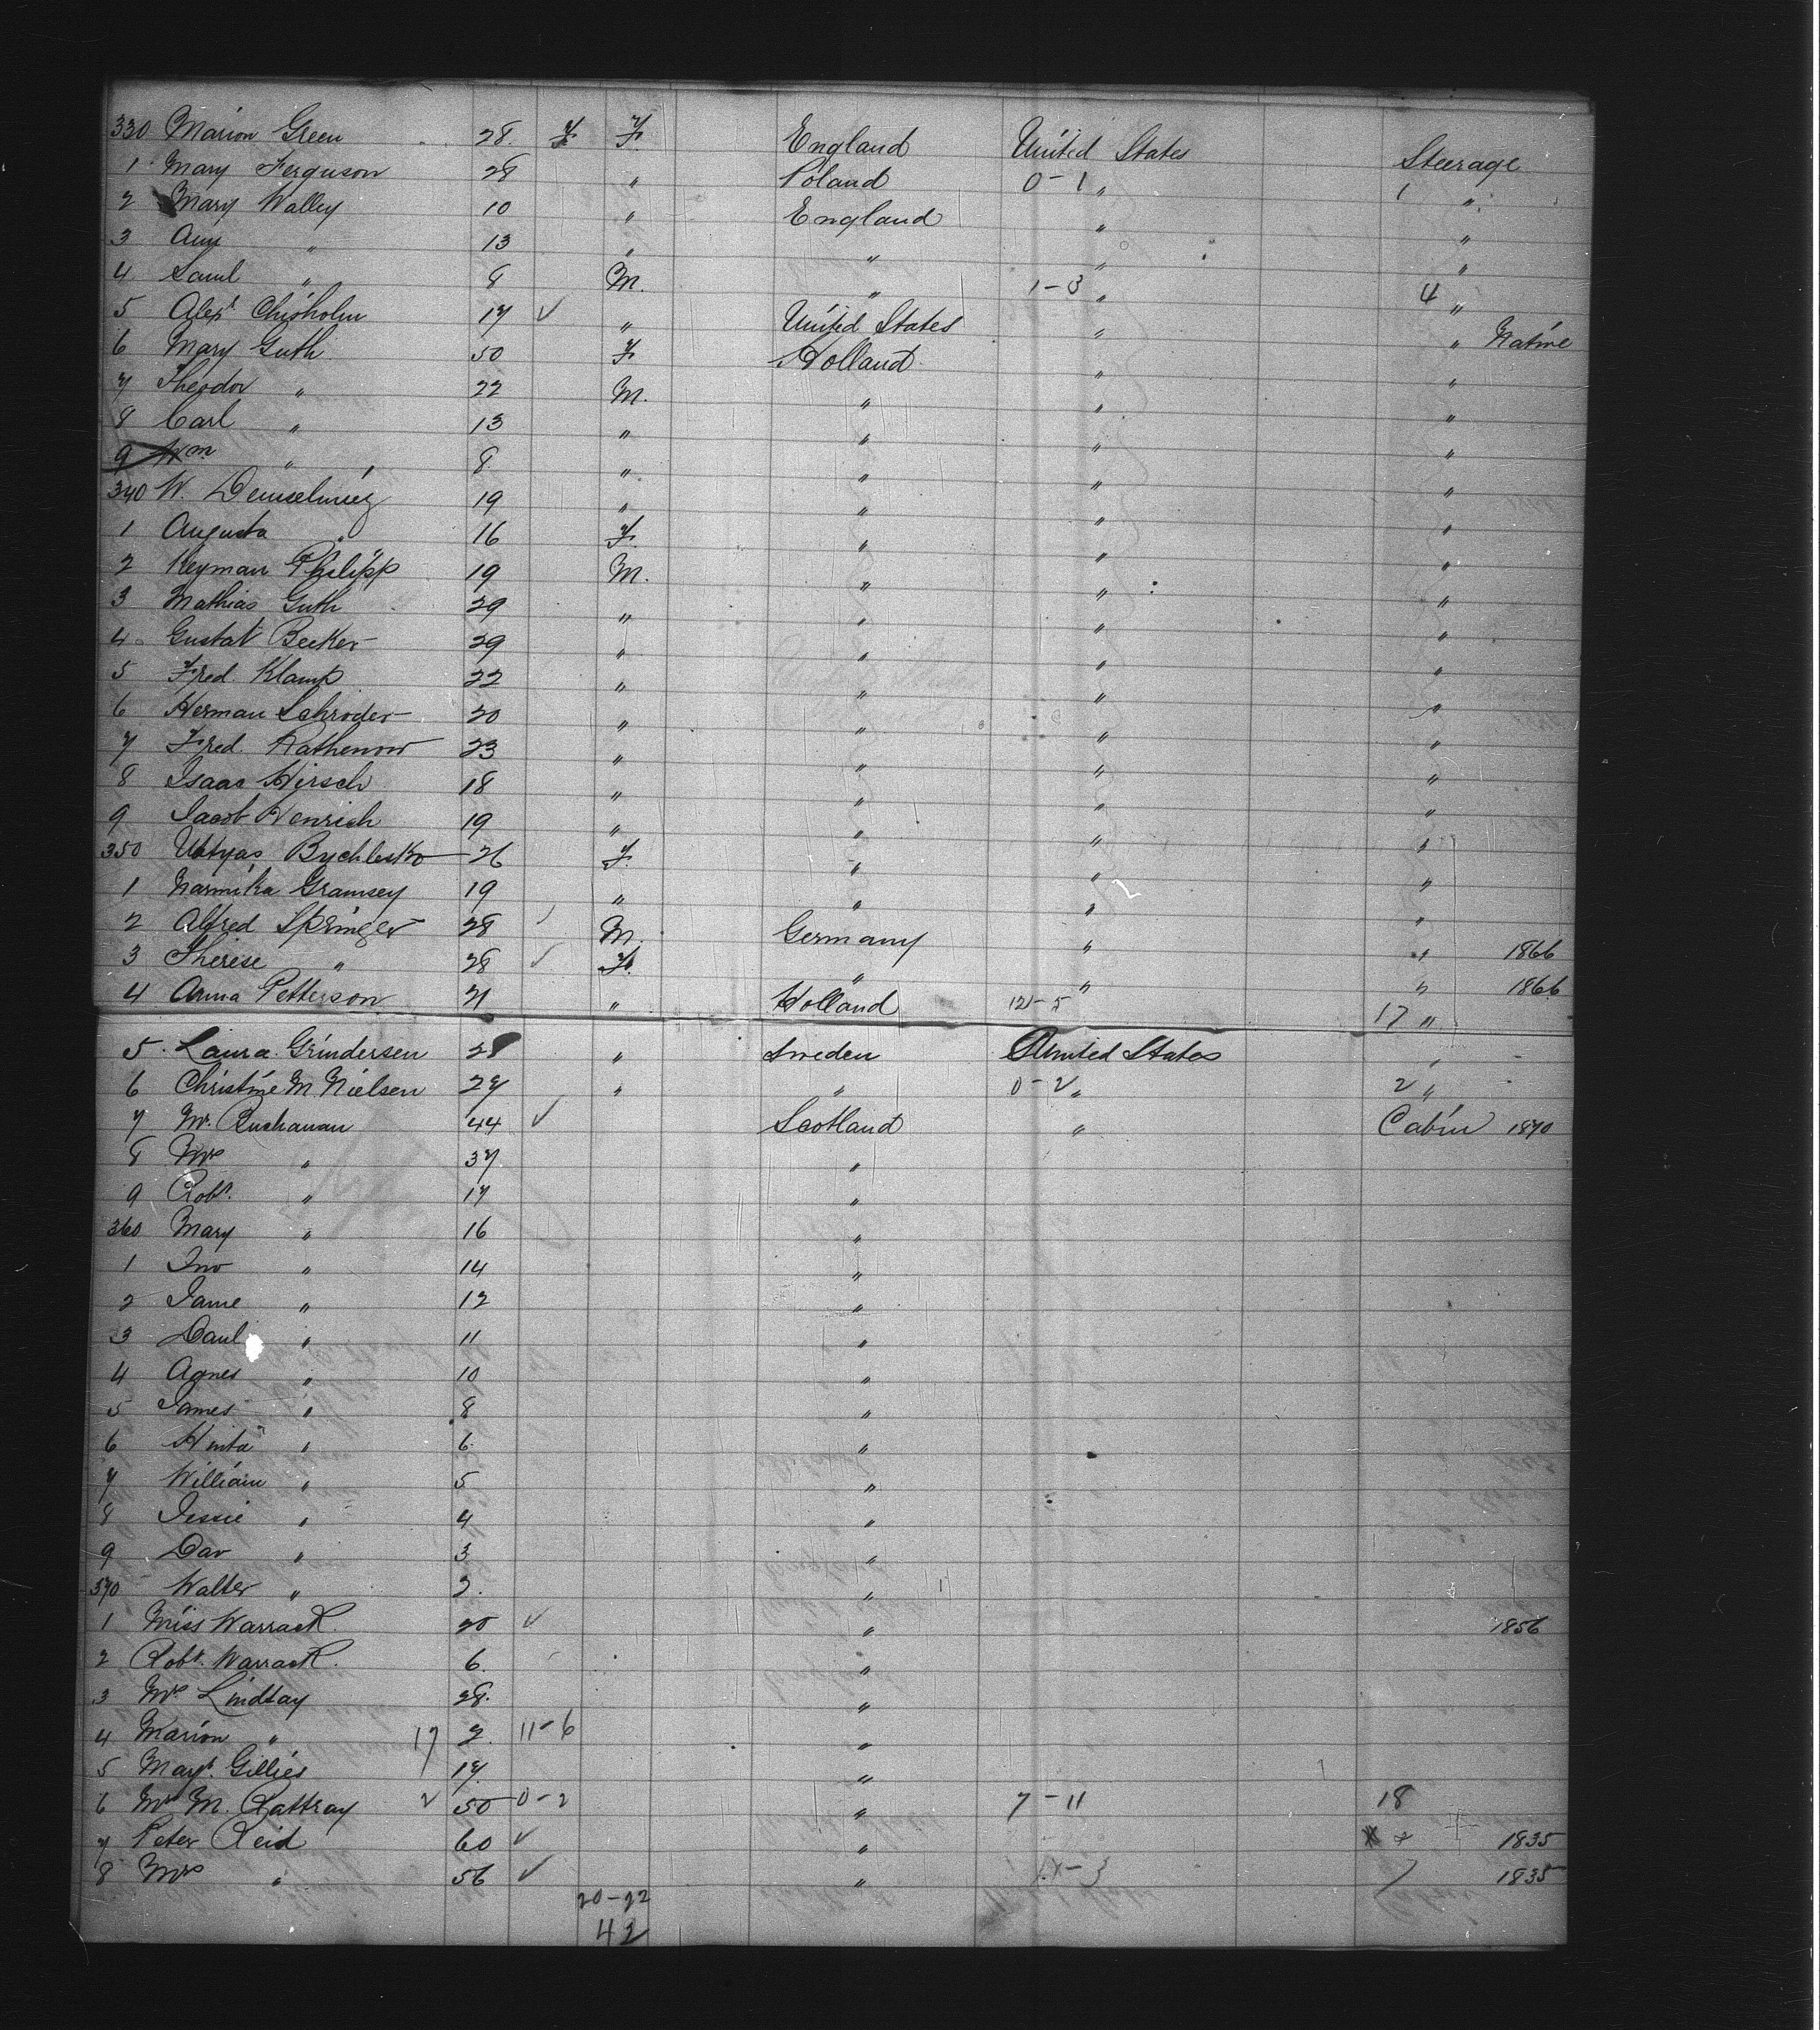 330 Marion Green 28. F F England United States Steerage
1 Mary Ferguson 28 " Poland 0-1 " 1 "
2 Mary Walley 10 " England " "
3 Ann " 13 " " " "
4 Saml " 8 M. " 1-3 " 4 "
5 Alexr Chisholm 17 ✓ " United States " " Native
6 Mary Guth 50 F. Holland " "
7 Theodor " 22 M. " " "
8 Carl " 13 " " " "
9 Wm " 8 " " " "
340 W. 19 " " " "
1 Augusta " 16 F. " " "
2 Heyman Philipp 19 M. " " "
3 Mathias Guth 29 " " " "
4 Gustav Becker 29 " " " "
5 Fred Klamp 22 " " " "
6 Herman Schroder 20 " " " "
7 Fred. Rathenow 23 " " " "
8 Isaac Hirsch 18 " " " "
9 Jacob Henrich 19 " " " "
350 26 F. " " "
1 Gramsey 19 " " " "
2 Alfred Springer 28 ✓ M. Germany " " 1866
3 Therese " 28 ✓ F. " " " 1866
4 Anna Petterson 21 " Holland 12-5 17 "
5 Laura Grindersen 28 " Sweden United States "
6 Christine M. Nielsen 27 " " 0-2 " 2 "
7 Mr. Buchanan 44 ✓ Scotland " Cabin 1870
8 Mrs " 37 "
9 Robt. " 17 "
360 Mary " 16 "
1 Jno " 14 "
2 Jane " 12 "
3 Danl " 11 "
4 Agnes " 10 "
5 James " 8 "
6 " 6 "
7 William " 5 "
8 Jessie " 4 "
9 Dav " 3 "
370 Walter " 2. "
1 Miss Warrack. 20 ✓ " 1856
2 Robt. Warrack. 6. "
3 Mrs Lindsay 28. "
4 Marion " 17 2. 11-6 "
5 Margt. Gillies 17. "
6 Mrs M. Rattray 2 50 0-2 " 7-11 18
7 Peter Reid 60 ✓ " 1835
8 Mrs " 56 ✓ " 1835
20-22
42